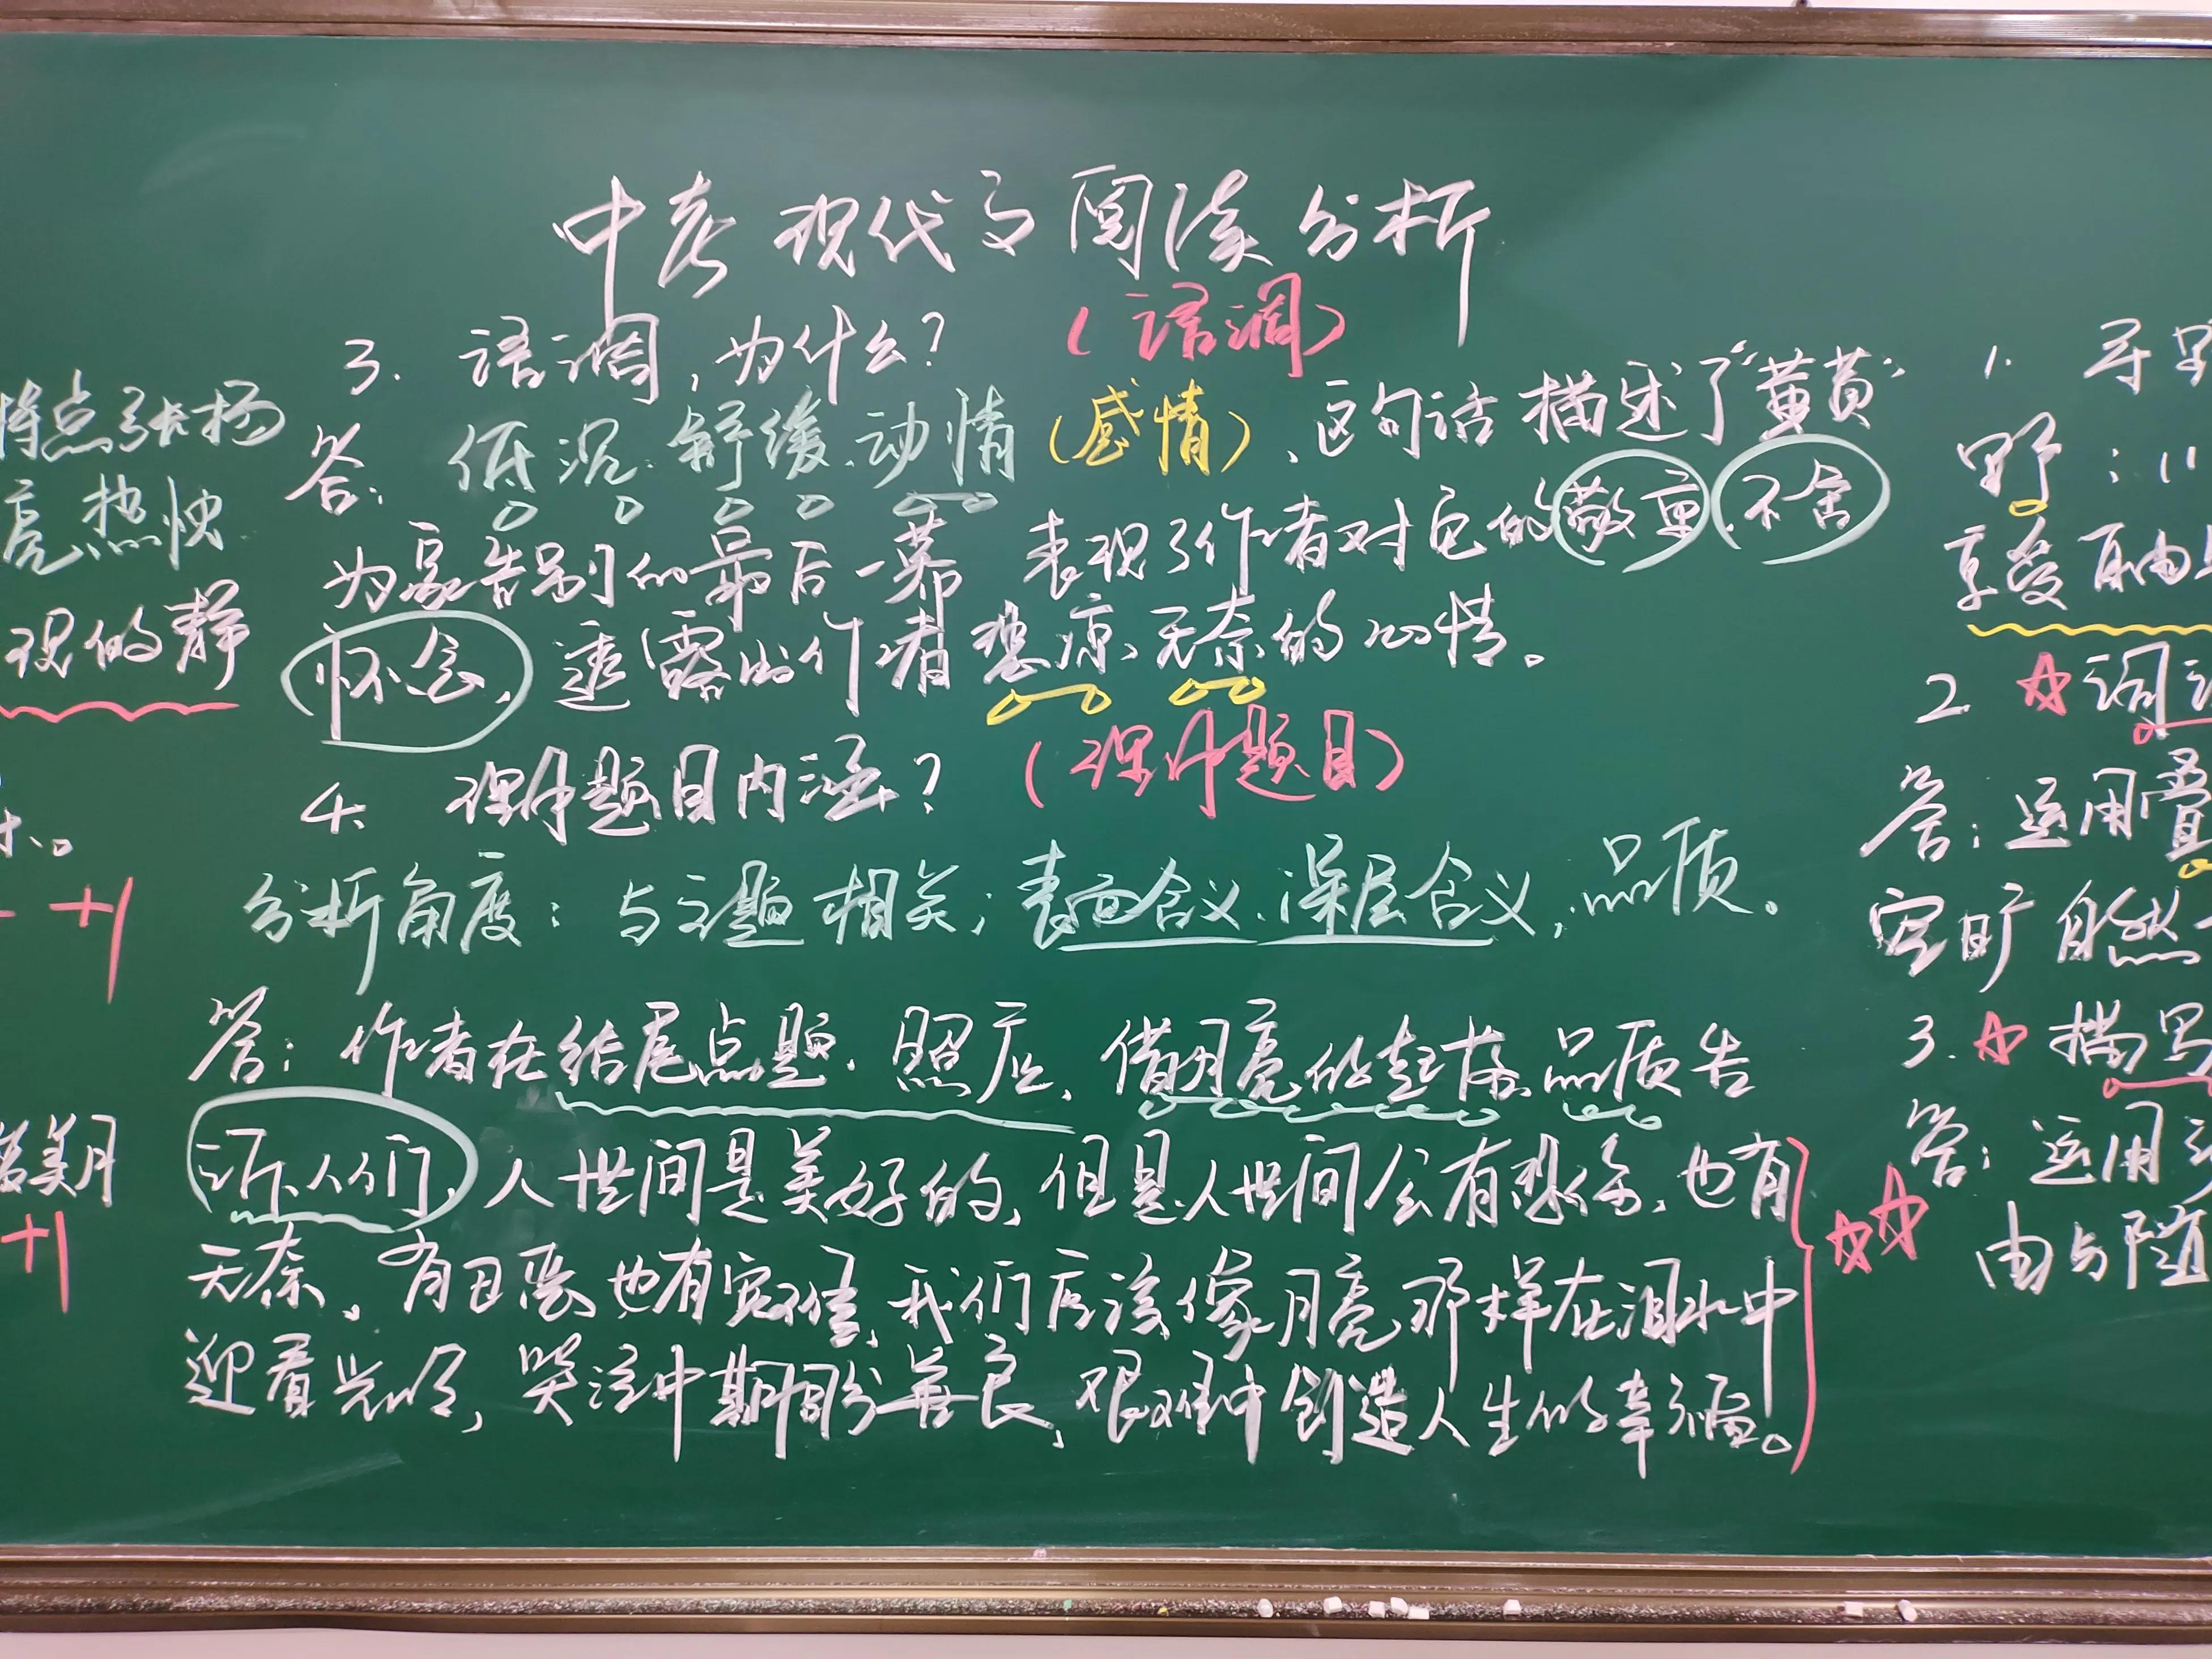 中考现代文阅读分析
3. 语调,为什么? (语调)
答: 低沉.舒缓.动情(感情)、这句话描述了“黄黄”
为家告别的最后一幕 表现了作者对它的敬重、不舍
怀念, 透露出作者悲凉、无奈的心情。
4. 课外题目内涵? (课外题目)
分析角度: 与主题相关; 表面含义.深层含义; 品质。
答: 作者在结尾点题.照应, 借月亮的起落、品质告
诉人们, 人世间是美好的, 但是人世间会有悲伤, 也有
无奈, 有丑恶也有 我们应该像月亮那样在泪水中
迎着光明, 哭泣中期盼善良, 艰难中创造人生的幸福。
特点张扬
亮热烈
现的静
+1
美月
+1
1. 寻
野: 11
享受自由
2. ☆词
答: 运用叠
空旷自然
3. ☆描写
答: 运用
由与随